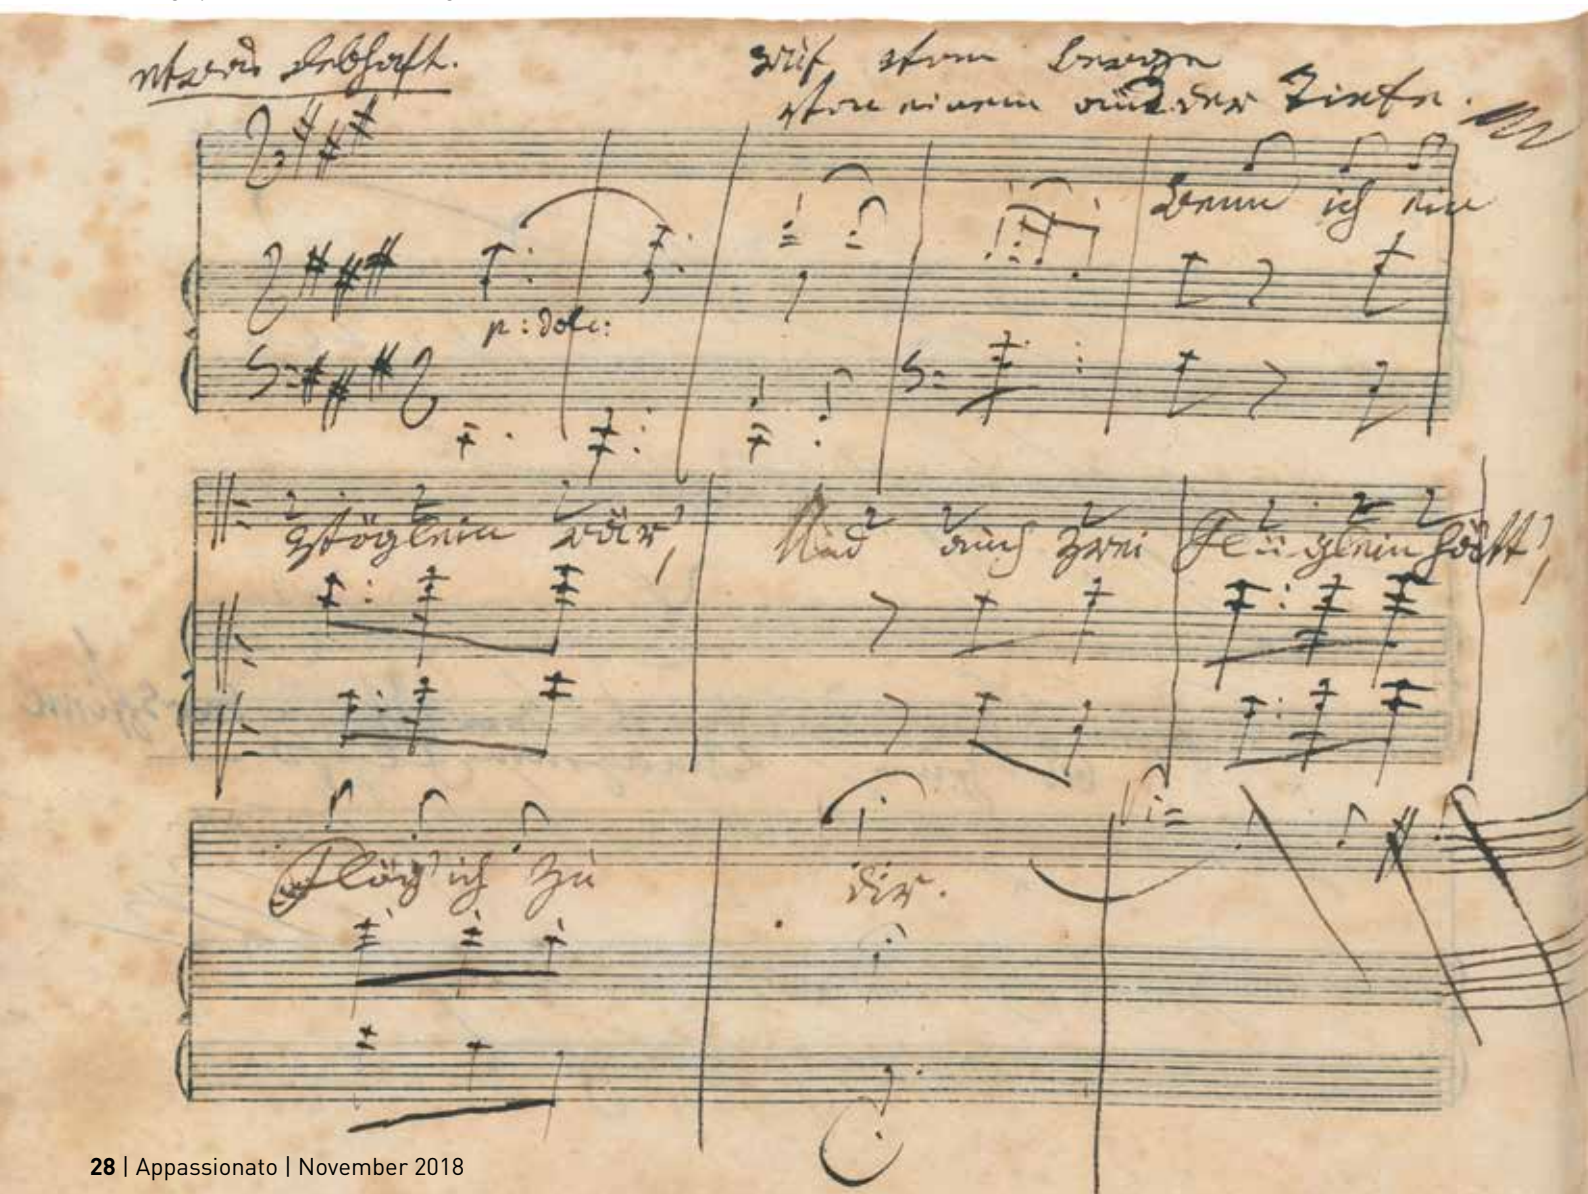 etwas lebhaft.
Ruf vom Berge
von einem aus der Tiefe.
Wenn ich ein
p: dolc:
Vöglein wär', Und auch zwei Flüglein hätt',
Flög' ich zu dir.
28 | Appassionato | November 2018